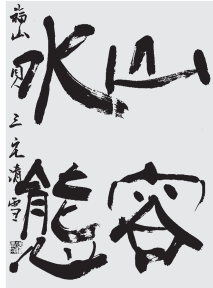 山容
水態
福山 三 清雪